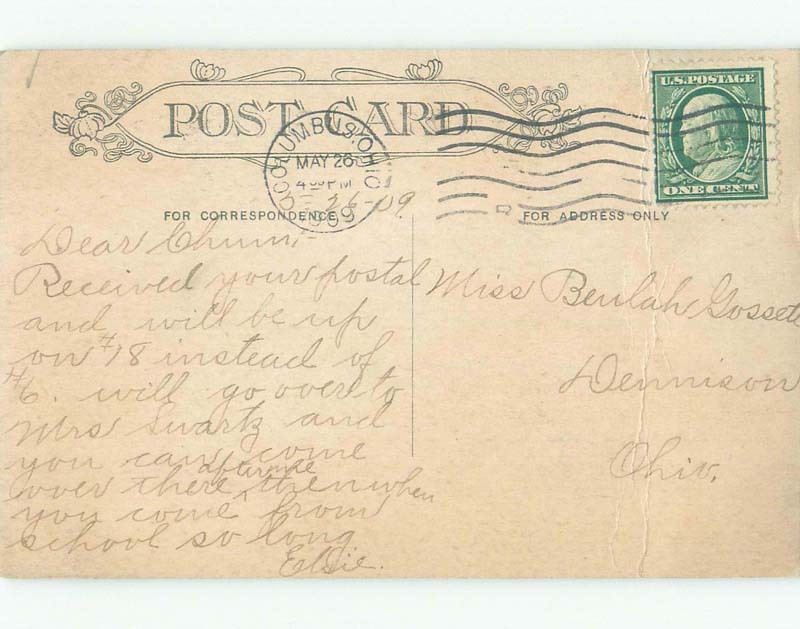 POST CARD
COLUMBUS, OHIO
MAY 26
4 00 PM
1909
U.S. POSTAGE
ONE CENT
5-26-09
FOR CORRESPONDENCE
FOR ADDRESS ONLY
Dear Chum,
Received your postal
and will be up
on #18 instead of
#6. will go over to
Mrs Swartz and
you can come
over there after me then when
you come from
school so long
Elsie.
Miss Beulah Gossett
Dennison
Ohio.